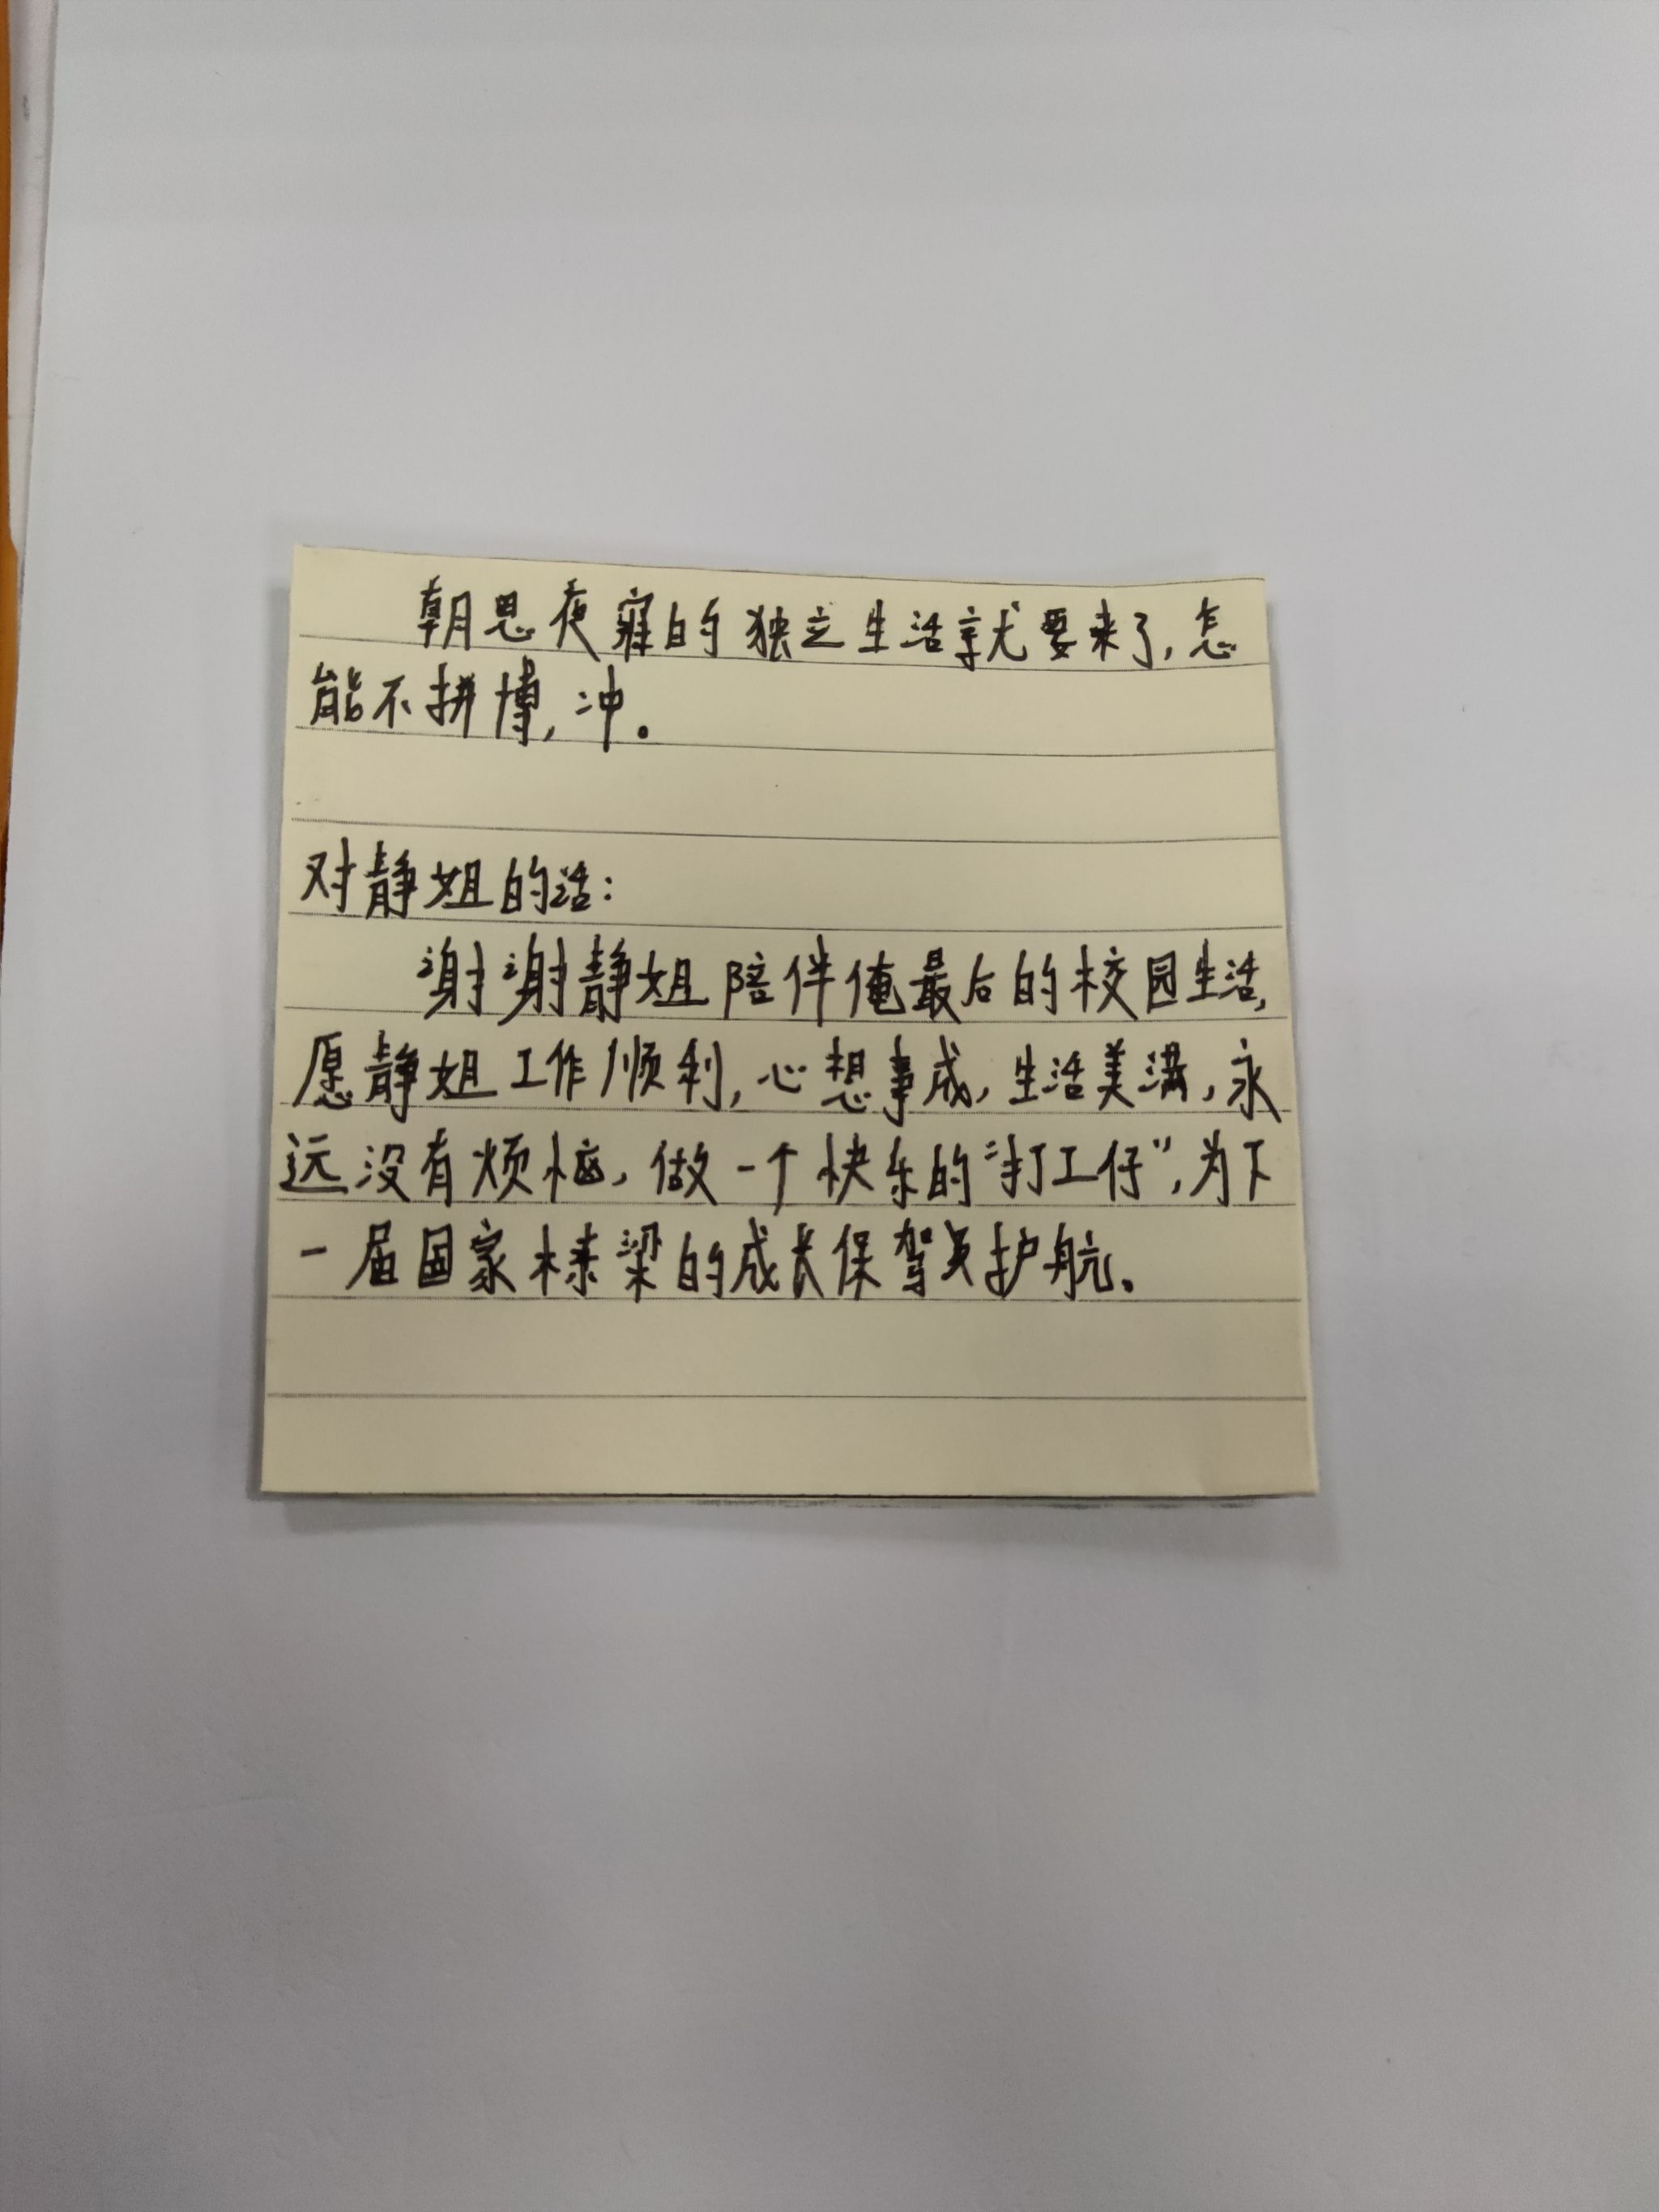 朝思夜寐的独立生活就要来了,怎
能不拼博,冲。
对静姐的话:
谢谢静姐陪伴俺最后的校园生活,
愿静姐工作顺利,心想事成,生活美满,永
远没有烦恼,做一个快乐的“打工仔”,为下
一届国家栋梁的成长保驾护航。